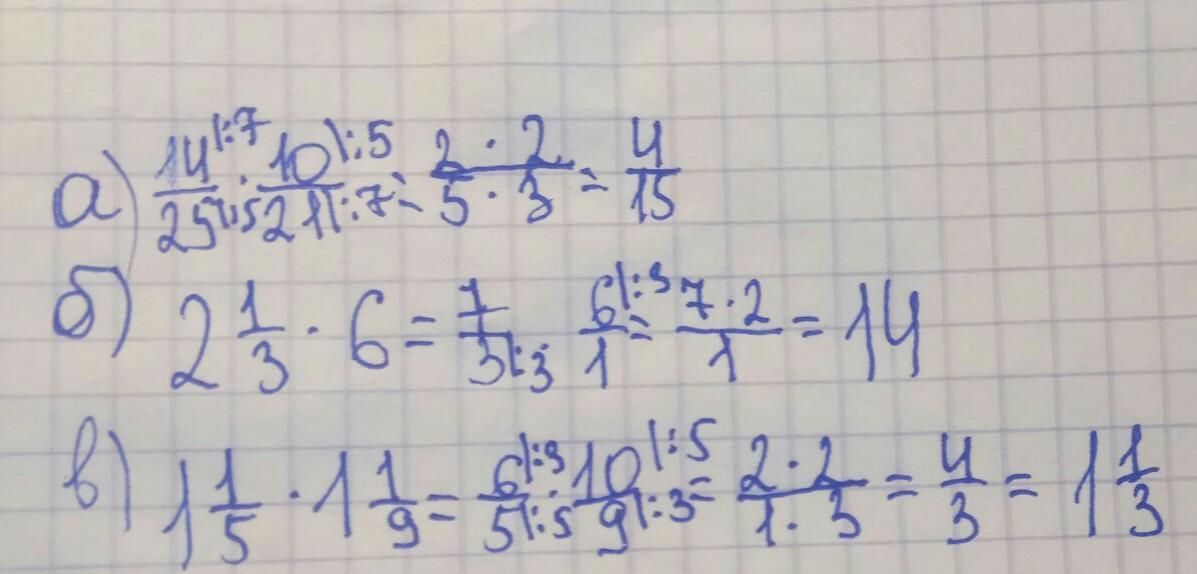 а) 14|:7/25|:5 · 10|:5/21|:7 = 2 · 2/5 · 3 = 4/15
б) 2 1/3 · 6 = 7/3|:3 · 6|:3/1 = 7 · 2/1 = 14
в) 1 1/5 · 1 1/9 = 6|:3/5|:5 · 10|:5/9|:3 = 2 · 2/1 · 3 = 4/3 = 1 1/3